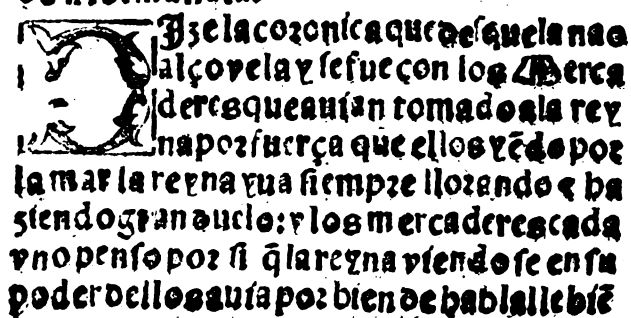 Dize la coronica que desque la nao
alço vela y se fue con los Merca
deres que auian tomado a la rey
na por fuerça que ellos yẽdo por
la mar la reyna yua siempre llorando e ha
ziendo gran duelo: y los mercaderes cada
vno penso por si q̃ la reyna viendose en su
poder dellos auia por bien de hablalle biẽ